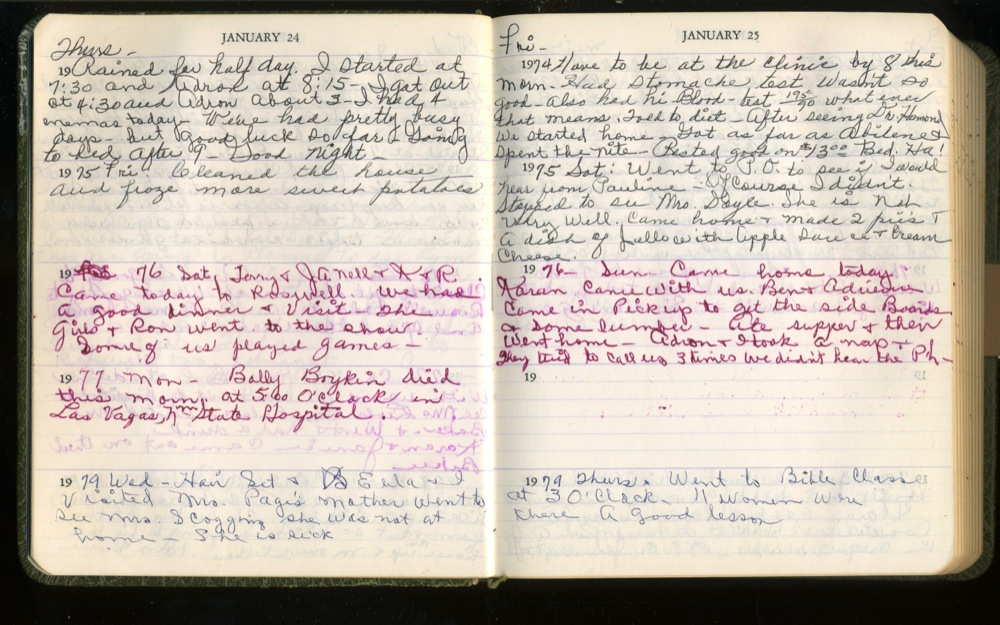 JANUARY 24
Thurs -
19 Rained for half day. I started at
7:30 and Adron at 8:15 - I got out
at 4:30 and Adron about 3 - I had 4
enemas today - We've had pretty busy
days - but good luck so far & going
to bed after 9 - Good night -
1975 Fri - Cleaned the house
and froze more sweet potatoes
19 76 Sat, Terry & JaNell & K & R
Came today to Roswell. We had
a good dinner & Visit - The
Girls & Ron went to the show
Some of us played games -
19 77 Mon - Bally Boykin died
this morn, at 5:00 O'Clock in
Las Vagas, n m State Hospital.
19 79 Wed - Hair Set & Eula & I
Visited Mrs. Pagis mother went to
see Mrs. Scoggins she was not at
home - She is sick
JANUARY 25
Fri -
1974 Have to be at the Clinic by 8 this
morn - Had Stomache test. Wasn't so
good - also had hi Blood - test 195/90 what ever
that means. Told to diet - After seeing Dr. Hamond
We started home - Got as far as Abilene &
Spent the nite - Rested good on $13.00 Bed. Ha!
1975 Sat: Went to P.O. to see if I would
hear from Pauline - Of Course I didn't.
Stopped to see Mrs. Doyle. She is Not
Very Well. Came home & made 2 pies &
A dish of Jello with Apple Sauce & Cream
Cheese.
19 76 - Sun - Came home today
Karan Came With us. Ben & Adriean
Came in Pickup to git the side Boards
& Some lumber - Ate supper & then
Went home - Adron & I took a nap &
they tried to call us 3 times we didn't hear the Ph -
19
1979 Thurs. Went to Bible Class
at 3 O'Clock. 11 Women were
there A good lesson